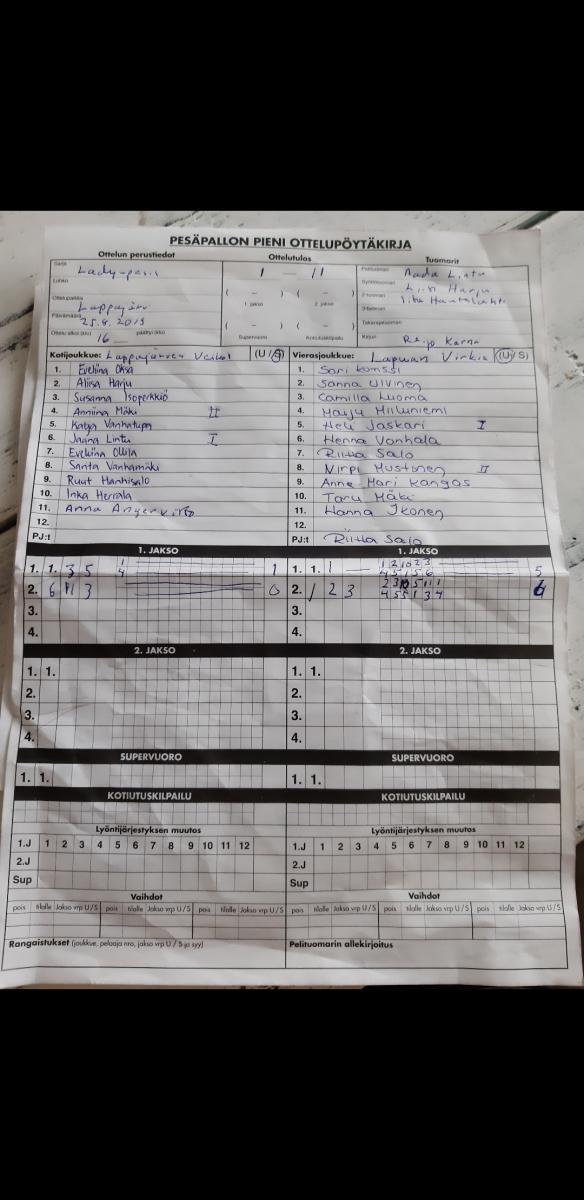 PESÄPALLON PIENI OTTELUPÖYTÄKIRJA
Ottelun perustiedot Ottelutulos Tuomarit
Sarja Lady-pesis 1 — 11 Pelituomari Lintu
Lohko ( – ) ( – ) Syöttötuomari Harju
Ottelupaikka Lappajärvi 1. jakso 2. jakso 2-tuomari Hautalahti
Päivämäärä 25.8.2019 3-tuomari
( – ) ( – ) Takarajatuomari
Ottelu alkoi (klo) 16 päättyi (klo) Supervuoro Kotiutuskilpailu Kirjuri Reijo Karna
Kotijoukkue: Lappajärven Veikot (U/S) Vierasjoukkue: Lapuan Virkiä (U/S)
1. Eveliina Oksa 1. Sari Konssi
2. Aliisa Harju 2. Sanna Ulvinen
3. Susanna Isoperkkiö 3. Camilla Luoma
4. Anniina Mäki II 4. Marju Hilluniemi
5. Katja Vanhatupa 5. Heli Jaskari I
6. Jaana Lintu I 6. Henna Vanhala
7. Eveliina Ollila 7. Riitta Salo
8. Santa Vanhamäki 8. Nirpi Mustonen II
9. Ruut Hanhisalo 9. Anne-Mari Kangas
10. Inka Herrala 10. Taru Mäki
11. Anna Angervisto 11. Hanna Ikonen
12. 12.
PJ:t PJ:t Riitta Salo
1. JAKSO 1. JAKSO
1. 1. 3 5 1 1 1. 1. 1 — 1 2 10 2 3 5
4 4 5 1 5 6
2. 6 11 3 0 2. 1 2 3 2 3 10 5 11 1 6
4 5 5 1 3 4
3. 3.
4. 4.
2. JAKSO 2. JAKSO
1. 1. 1. 1.
2. 2.
3. 3.
4. 4.
SUPERVUORO SUPERVUORO
1. 1. 1. 1.
KOTIUTUSKILPAILU KOTIUTUSKILPAILU
Lyöntijärjestyksen muutos Lyöntijärjestyksen muutos
1.J 1 2 3 4 5 6 7 8 9 10 11 12 1.J 1 2 3 4 5 6 7 8 9 10 11 12
2.J 2.J
Sup Sup
Vaihdot Vaihdot
pois tilalle Jakso vrp U/S pois tilalle Jakso vrp U/S pois tilalle Jakso vrp U/S pois tilalle Jakso vrp U/S pois tilalle Jakso vrp U/S pois tilalle Jakso vrp U/S
Rangaistukset (joukkue, pelaaja nro, jakso vrp U / S ja syy) Pelituomarin allekirjoitus